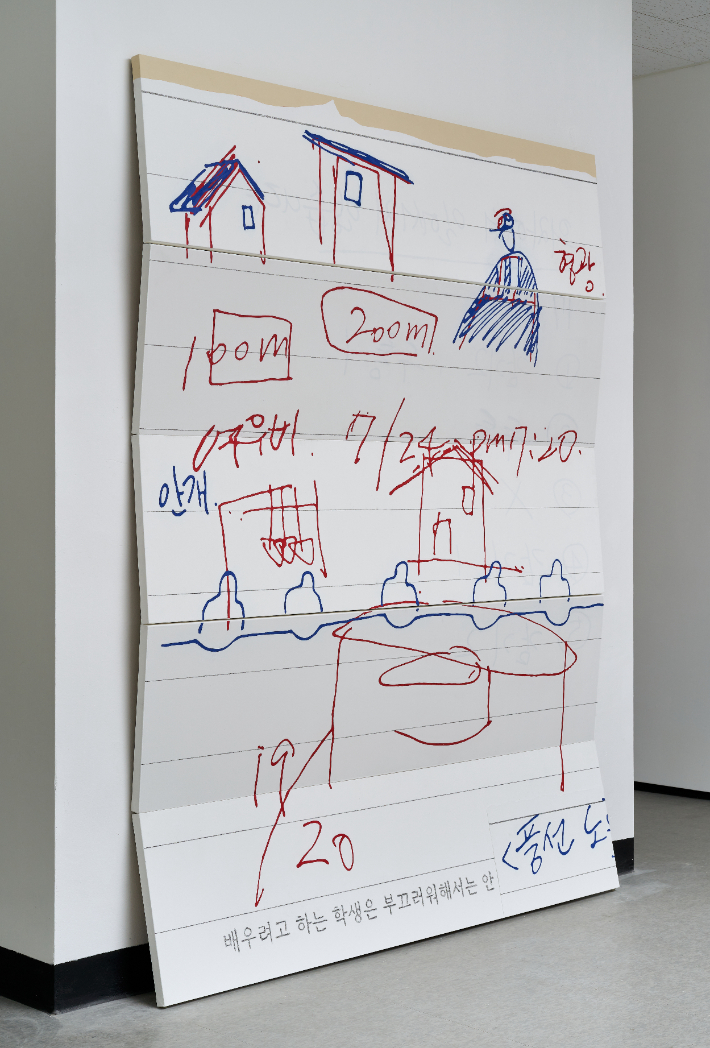 형광.
100m 200m
여우비. 7/24 pm7:20.
안개.
19
20
<풍선 노
배우려고 하는 학생은 부끄러워해서는 안